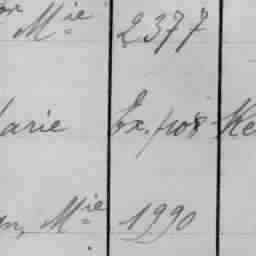 Mie 2377
arie Ex. pos Ke
Mie 1990